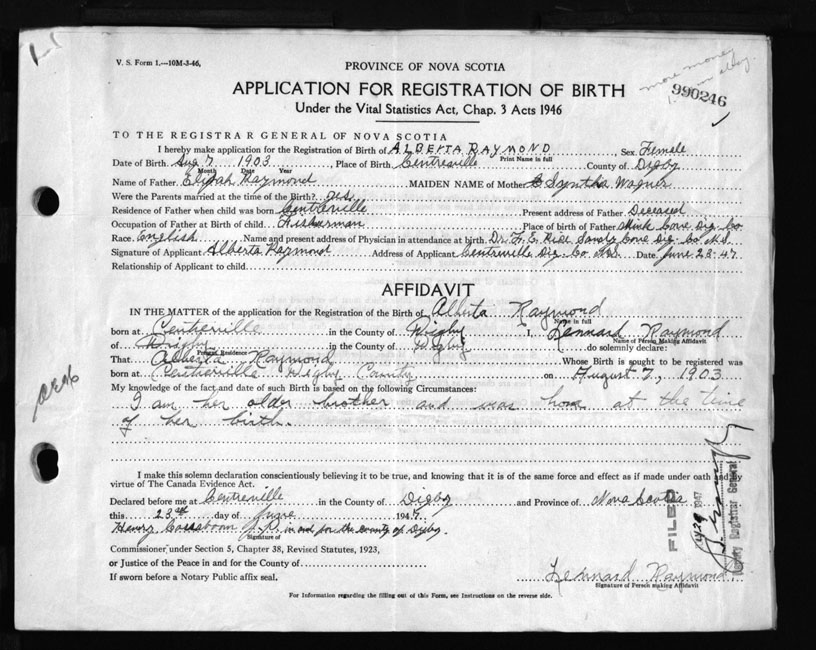 V. S. Form 1.—10M-3-46,
PROVINCE OF NOVA SCOTIA
more money
APPLICATION FOR REGISTRATION OF BIRTH
990246
Under the Vital Statistics Act, Chap. 3 Acts 1946
TO THE REGISTRAR GENERAL OF NOVA SCOTIA
I hereby make application for the Registration of Birth of ALBERTA RAYMOND, Sex Female
Print Name in full
Date of Birth Aug 7 1903, Place of Birth Centreville County of Digby
Month Date Year
Name of Father Elijah Raymond MAIDEN NAME of Mother Wagner
Were the Parents married at the time of the Birth? yes
Residence of Father when child was born Centreville Present address of Father Deceased
Occupation of Father at Birth of child Fisherman Place of birth of Father Mink Cove Dig. Co.
Race English Name and present address of Physician in attendance at birth Dr. F. E. Rice Sandy Cove Dig. Co N.S.
Signature of Applicant Alberta Raymond Address of Applicant Centreville Dig. Co. N.S. Date June 23-47
Relationship of Applicant to child
AFFIDAVIT
IN THE MATTER of the application for the Registration of the Birth of Alberta Raymond
Name in full
born at Centerville in the County of Digby I, Lennard Raymond
Name of Person Making Affidavit
of Digby in the County of Digby do solemnly declare:
Present Residence
That Alberta Raymond Whose Birth is sought to be registered was
born at Centerville Digby County on August 7, 1903
My knowledge of the fact and date of such Birth is based on the following Circumstances:
I am her older brother and was home at the time
of her birth.
I make this solemn declaration conscientiously believing it to be true, and knowing that it is of the same force and effect as if made under oath and by
virtue of The Canada Evidence Act.
Declared before me at Centreville in the County of Digby and Province of Nova Scotia
this 23rd day of June 1947
Henry J.P. in and for the county of Digby.
Signature of
Commissioner under Section 5, Chapter 38, Revised Statutes, 1923,
or Justice of the Peace in and for the County of
If sworn before a Notary Public affix seal.
Lennard Raymond
Signature of Person Making Affidavit
For Information regarding the filling out of this Form, see Instructions on the reverse side.
FILED
1947
Deputy Registrar General